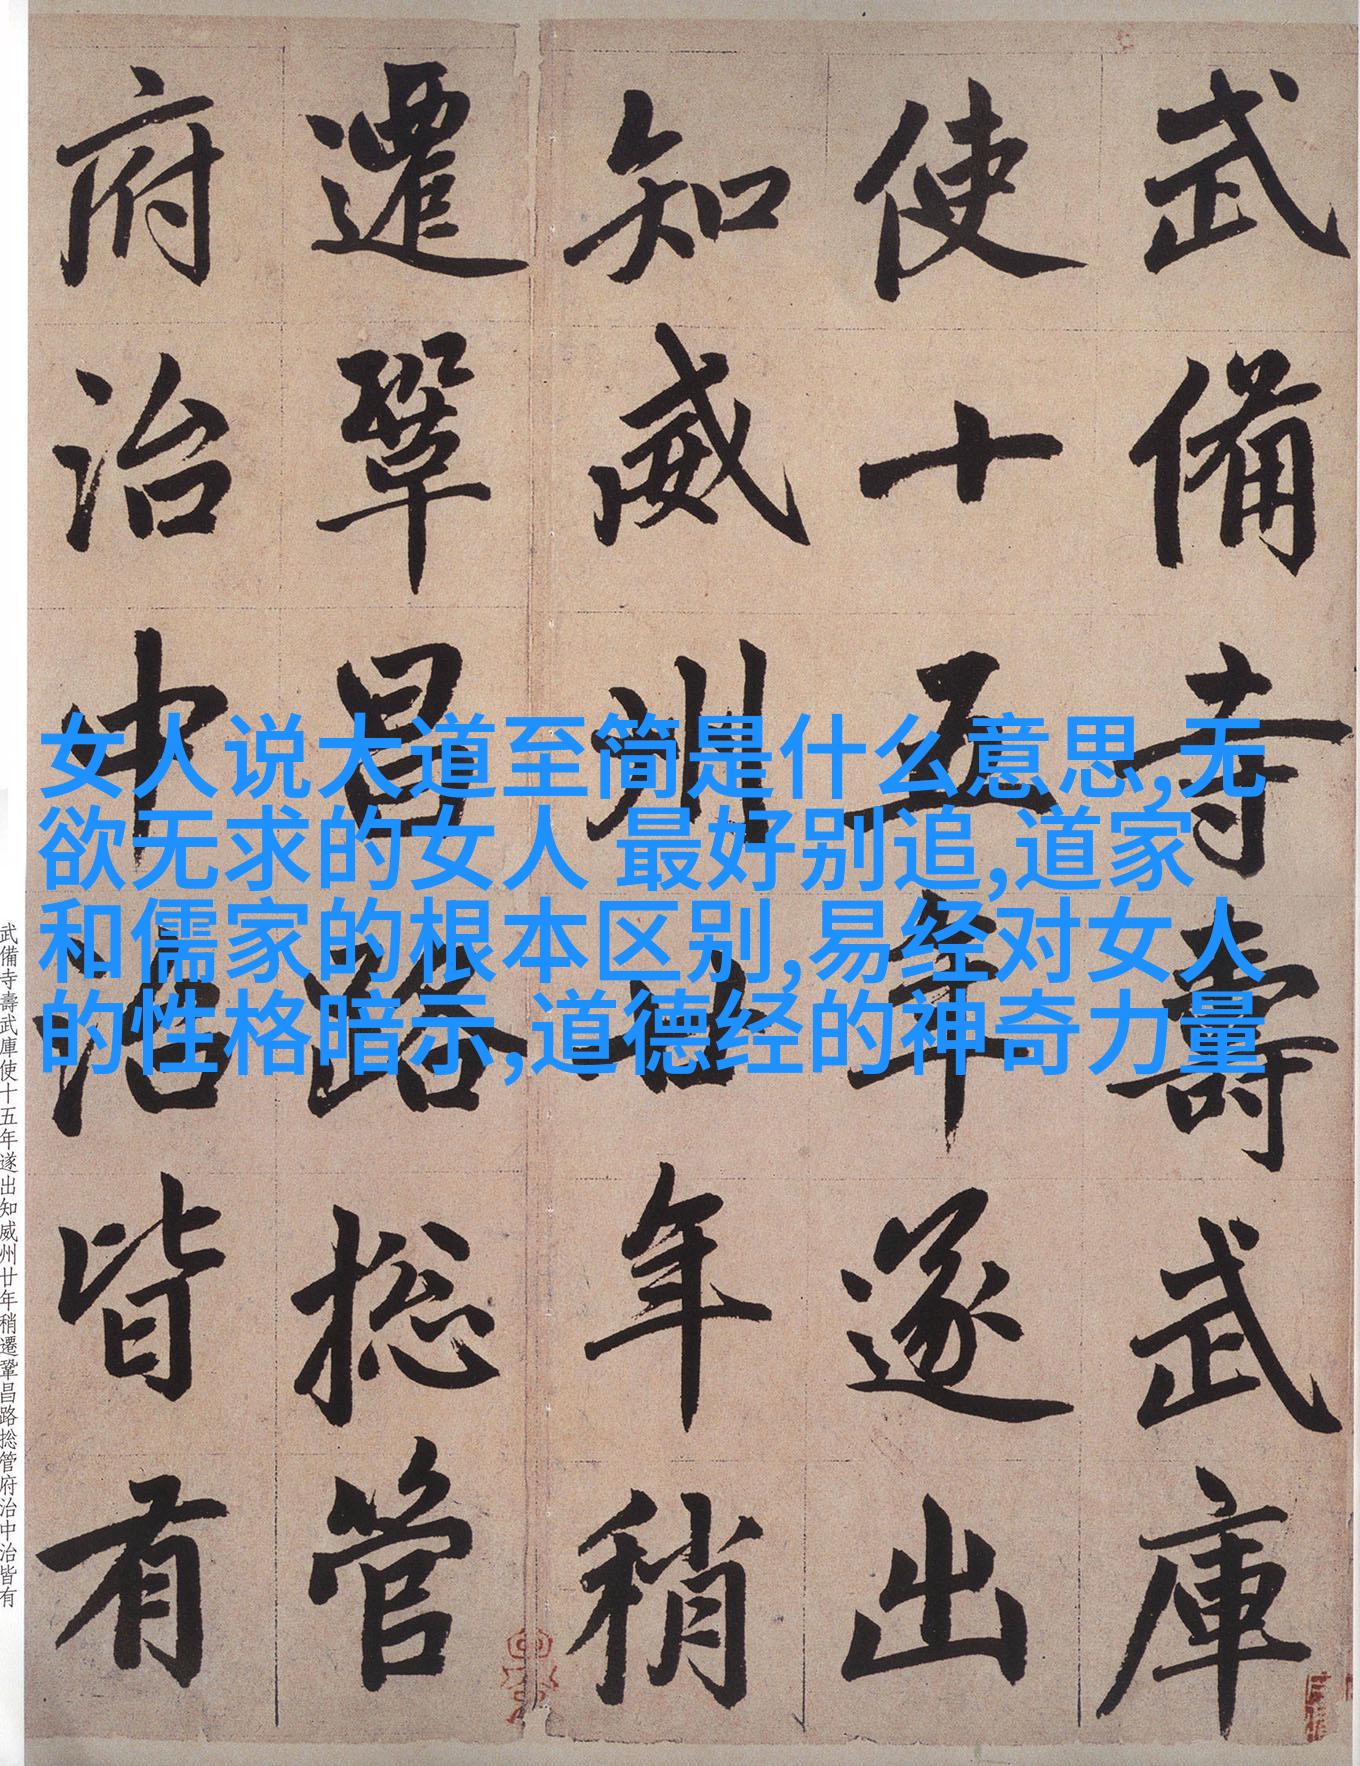 武備寺壽武庫
使十五年遂出
知威州廿年稍
遷鞏昌路捴管
府治中治皆有
女人说大道至简是什么意思,无
欲无求的女人 最好别追,道家
和儒家的根本区别,易经对女人
的性格暗示,道德经的神奇力量
武備寺壽武庫使十五年遂出知威州廿年稍遷鞏昌路捴管府治中治皆有